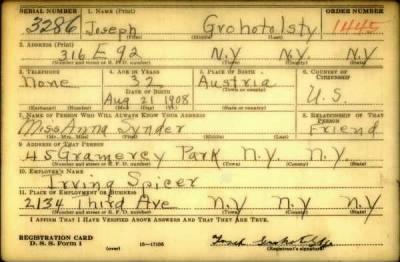 SERIAL NUMBER 1. NAME (Print) ORDER NUMBER
3286 Joseph Grohotolsty 1445
2. ADDRESS (Print)
316 E 92 N.Y N.Y. N.Y.
(Number and street or R. F. D. number) (Town) (County) (State)
3. TELEPHONE 4. AGE IN YEARS 5. PLACE OF BIRTH 6. COUNTRY OF CITIZENSHIP
None 32 Austria
DATE OF BIRTH (Town or county)
Aug 21 1908 U.S.
(Exchange) (Number) (Mo.) (Day) (Yr.) (State or country)
7. NAME OF PERSON WHO WILL ALWAYS KNOW YOUR ADDRESS 8. RELATIONSHIP OF THAT PERSON
Miss Anna Synder Friend
(Mr., Mrs., Miss) (First) (Middle) (Last)
9. ADDRESS OF THAT PERSON
45 Gramercy Park N.Y. N.Y.
(Number and street or R. F. D. number) (Town) (County) (State)
10. EMPLOYER'S NAME
Irving Spicer
11. PLACE OF EMPLOYMENT OR BUSINESS
2134 Third Ave N.Y N.Y N.Y.
(Number and street or R. F. D. number) (Town) (County) (State)
I AFFIRM THAT I HAVE VERIFIED ABOVE ANSWERS AND THAT THEY ARE TRUE.
REGISTRATION CARD
D. S. S. Form 1 (over) 16-17105
(Registrant's signature)